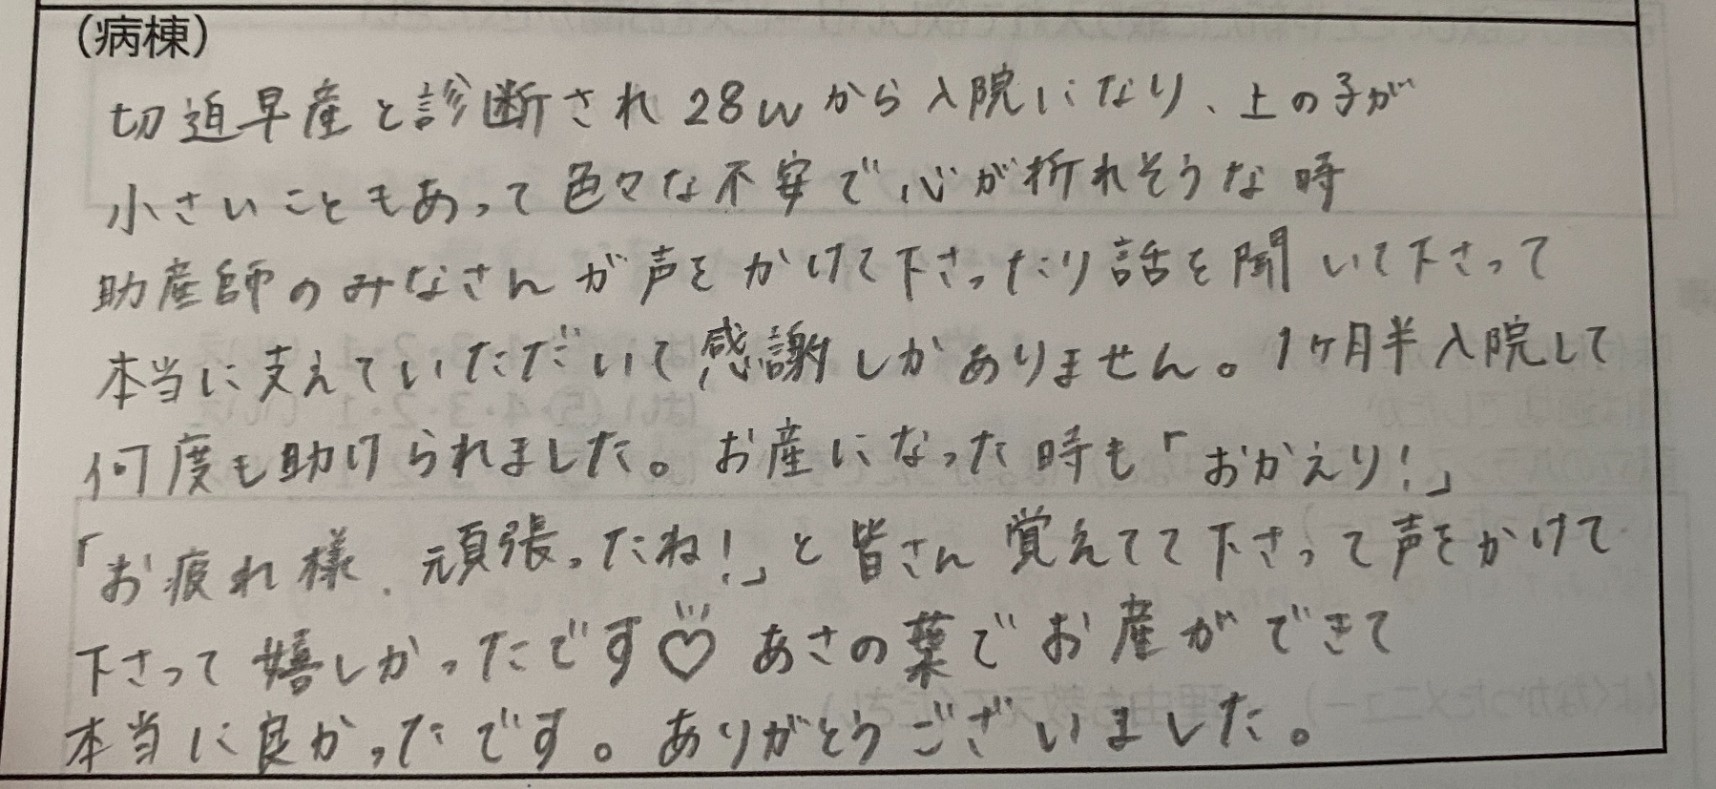 (病棟)
切迫早産と診断され28wから入院になり、上の子が
小さいこともあって色々な不安で心が折れそうな時
助産師のみなさんが声をかけて下さったり話を聞いて下さって
本当に支えていただいて感謝しかありません。1ヶ月半入院して
何度も助けられました。お産になった時も「おかえり!」
「お疲れ様、頑張ったね!」と皆さん覚えてて下さって声をかけて
下さって嬉しかったです♡あさの葉でお産ができて
本当に良かったです。ありがとうございました。